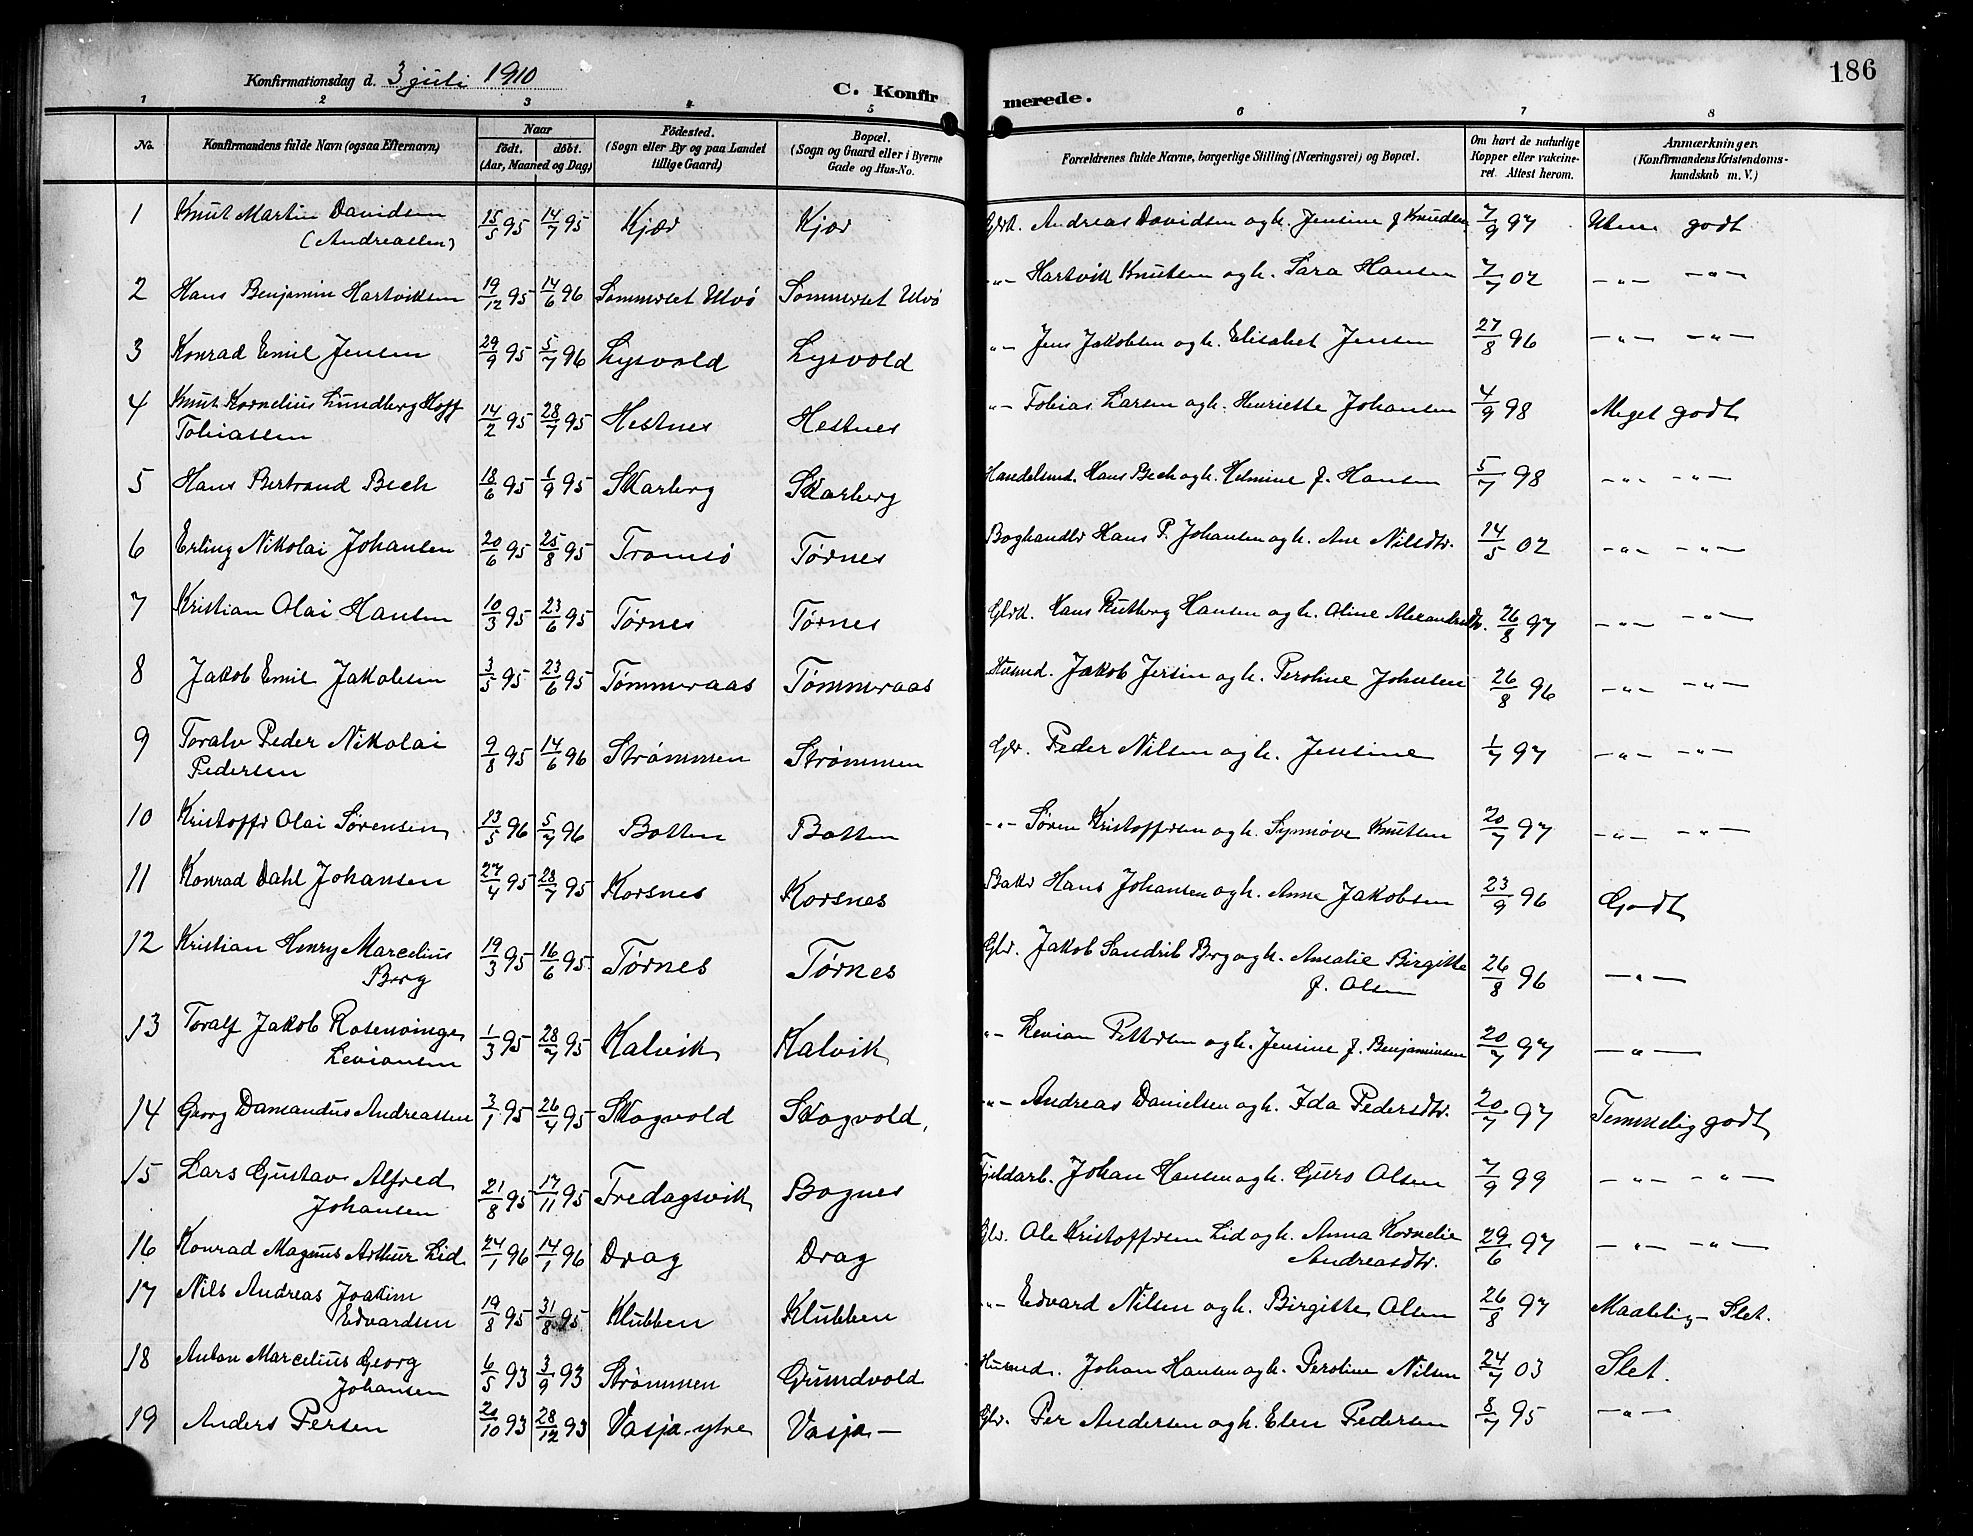 186
Konfirmationsdag d. 3 juli 1910
C. Konfirmerede.
1 2 3 4 5 6 7 8
No.
Konfirmandens fulde Navn (ogsaa Efternavn)
Naar
födt. döbt.
(Aar, Maaned og Dag)
Födested.
(Sogn eller By og paa Landet
tillige Gaard)
Bopæl.
(Sogn og Gaard eller i Byerne
Gade og Hus-No.
Forældrenes fulde Navne, borgerlige Stilling (Næringsvei) og Bopæl.
Om havt de naturlige
Kopper eller vakcine-
ret. Attest herom.
Anmærkninger.
(Konfirmandens Kristendoms-
kundskab m. V.)
1 Knut Martin Davidsen 15/5 95 14/7 95 Kjær Kjær Andreas Davidsen og h. Jensine f Knudsen 7/9 97 godt
(Andreassen)
2 Hans Benjamin Hartviksen 19/12 95 14/6 96 Sommerset Ulvø Sommerset Ulvø -"- Hartvik Knutsen og h. Sara Hansen 7/7 02 -"- -"-
3 Konrad Emil Jensen 29/9 95 5/7 96 Lysvold Lysvold "- Jens Jakobsen og h. Elisabet Jensen 27/8 96 -"- -"-
4 Knut Kornelius Lundberg Hoff 14/2 95 28/7 95 Hestnes Hestnes "- Tobias Larsen og h. Henriette Johansen 4/9 98 Meget godt
Tobiassen
5 Hans Bertrand Bech 18/6 95 1/9 95 Skarberg Skarberg Handelsmd. Hans Bech og h. Helmine f. Hansen 5/7 98 -"- -"-
6 Erling Nikolai Johansen 20/6 95 25/8 95 Tromsö Tørnes Boghandlr Hans P. Johansen og h. Ane Nilsdtr. 14/5 02 -"- -"-
7 Kristian Olai Hansen 10/3 95 23/6 95 Tørnes Tørnes Hans Rutberg Hansen og h. Oline 26/8 97 -"- -"-
8 Jakob Emil Jakobsen 3/5 95 23/6 95 Tömmeraas Tömmeraas Husmd. Jakob Jersin og h. Peroline Johnsen 26/8 96 -"- -"-
9 Toralv Peder Nikolai 9/8 95 14/6 96 Strømmen Strømmen Gbr. Peder Nilsen og h. Jensine 1/7 97 -"- -"-
Pedersen
10 Kristoffr Olai Sørensen 13/5 96 5/7 96 Botten Botten -"- Søren Kristoffersen og h. Synnöve Knutsen 20/7 97 -"- -"-
11 Konrad Dahl Johansen 27/4 95 28/7 95 Korsnes Korsnes Hans Johansen og h. Anne Jakobsen 23/9 96 Godt
12 Kristian Henry Marcelius 19/3 95 16/6 95 Tørnes Tørnes Gbr. Jakob Sandrib Berg og h. Amalie Birgitte 26/8 96 -"-
Berg f. Olsen
13 Toralf Jakob Rosenvinge 1/3 95 28/7 95 Kalvik Kalvik "- Levian Pettersen og h. Jensine f. Benjaminsen 20/7 97 -"-
Leviansen
14 Georg Damandus Andreassen 3/1 95 26/4 95 Skogvold Skogvold, -"- Andreas Danielsen og h. Ida Pedersdtr. 20/7 97 Temmelig godt
15 Lars Gustav Alfred 21/8 95 17/11 95 Fredagsvik Bognes Fjeldarb. Johan Hansen og h. Guro Olsen 7/9 99 -"- -"-
Johansen
16 Konrad Magnus Arthur Lid 24/1 96 14/1 96 Drag Drag Gbr. Ole Kristoffersen Lid og h. Anna Kornelie 29/6 97 -"- -"-
Andreasdtr.
17 Nils Andreas Joakim 19/8 95 31/8 95 Klubben Klubben -"- Edvard Nilsen og h. Birgitte Olsen 26/8 97 Maadelig - Slet.
Edvardsen
18 Anton Marcelius Georg 6/5 93 3/9 93 Strömmen Grundvold Husmd. Johan Hansen og h. Peroline Nilsen 24/7 03 Slet.
Johansen
19 Anders Persen 20/10 93 28/12 93 Vasja-ytre Vasja - Gbr. Per Andersen og h. Elen Pedersen 8/7 95 -"-